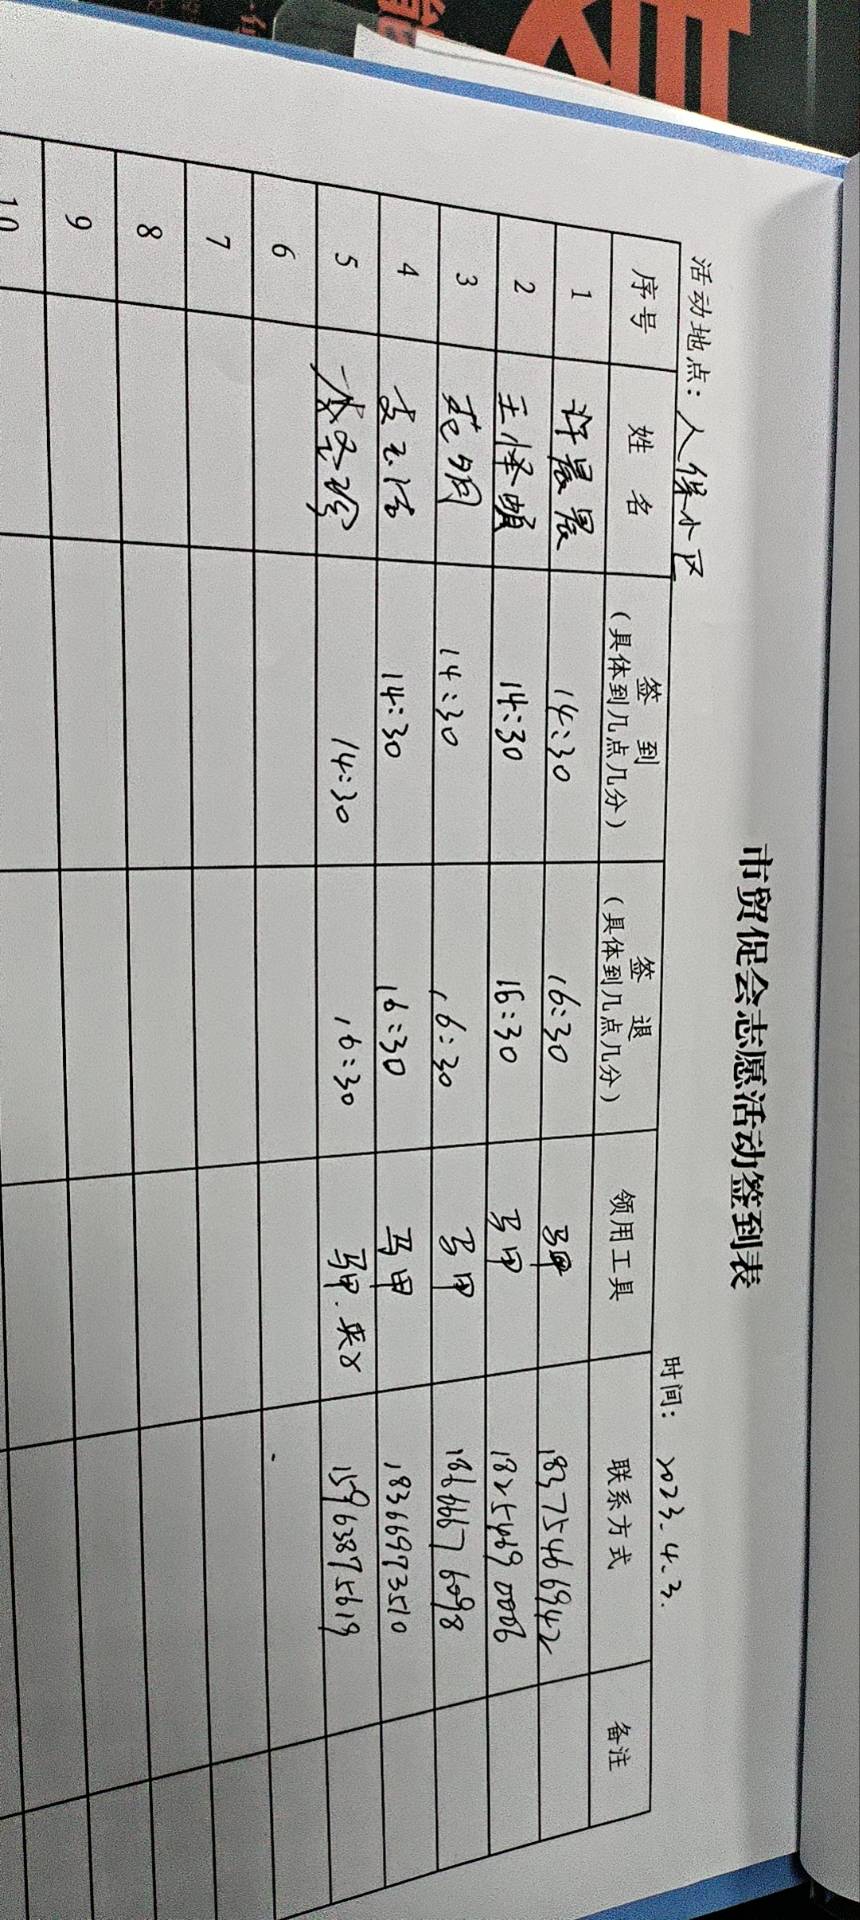 市贸促会志愿活动签到表
活动地点：人保小区 时间： 2023.4.3.
序号 姓 名 签 到（具体到几点几分） 签 退（具体到几点几分） 领用工具 联系方式 备注
1 许晨晨 14:30 16:30 马甲 18375466942
2 王怿 14:30 16:30 马甲 18254690006
3 明 14:30 16:30 马甲 18666676098
4 14:30 16:30 马甲 18366973510
5 14:30 16:30 马甲.夹子 15963875619
6
7
8
9
10